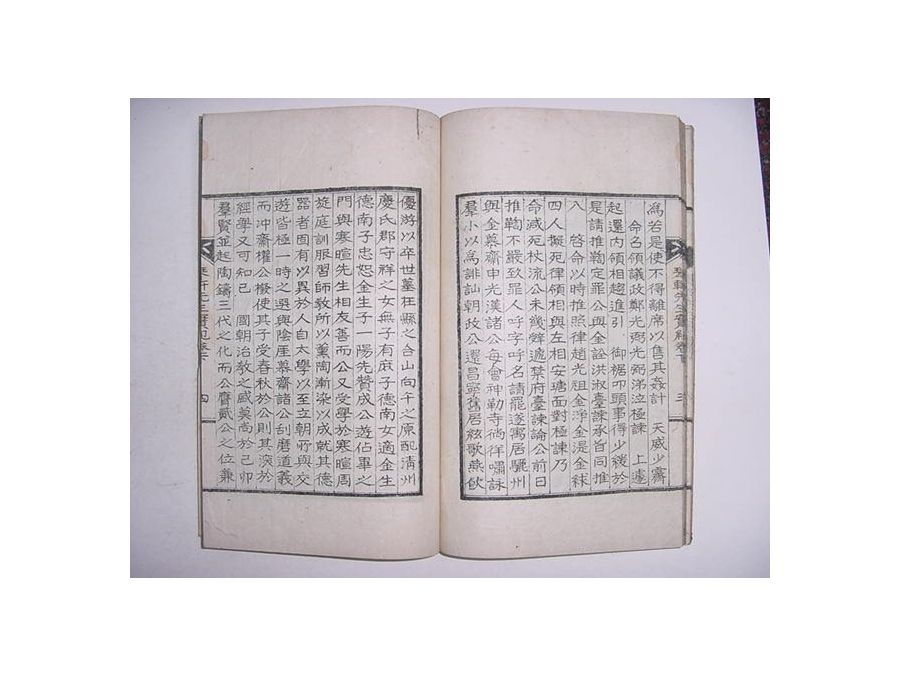 爲若是使不得離席以售其姦計　天威少霽
命召領議政鄭光弼光弼泣極諫　上遽
起還內領相趨進引　御裾叩頭事得少緩於
是請推鞫定罪公與金詮洪淑臺諫承旨同推
入　啓命以時推照律趙光祖金淨金湜金絿
四人擬死律領相與左相安瑭面對極諫乃
命减死杖流公未幾舜遞禁府臺諫論公前日
推鞫不嚴致罪人呼字呼名請罷遂寓居驪州
與金慕齋申光漢諸公每會神勒寺徜徉嘯詠
羣小以爲誹訕朝政公還昌寧舊居絃歌燕飮
先生實紀卷下　三
優游以卒世墓在縣之合山向午之原配淸州
慶氏郡守祥之女無子有麻子德南女適金生
德南子忠恕金生子一陽先贊成公遊佔畢之
門與寒暄先生相友善而公又受學於寒暄周
旋庭訓服習師敎所以薰陶漸染以成就其德
器者固有以異於人自太學以至立朝所與交
遊皆極一時之選與陰厓慕齋諸公刮磨道義
而冲齋權公撥使其子受春秋於公則其深於
經學又可知已　國朝治敎之盛莫尙於己卯
羣賢並起陶鑄三代之化而公膺貳公之位兼
先生實紀卷下　四